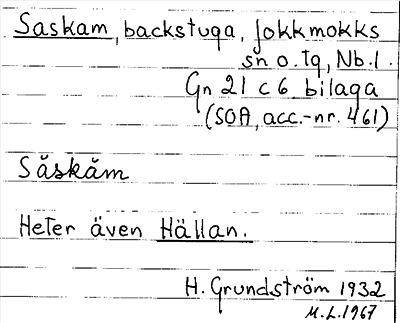 Saskam, backstuga, Jokkmokks
sn o. tg, Nb. l.
Gn 21 c 6 bilaga
(SOA, acc.-nr. 461)
Såskåm
Heter även Hällan.
H. Grundström 1932
M.L. 1967